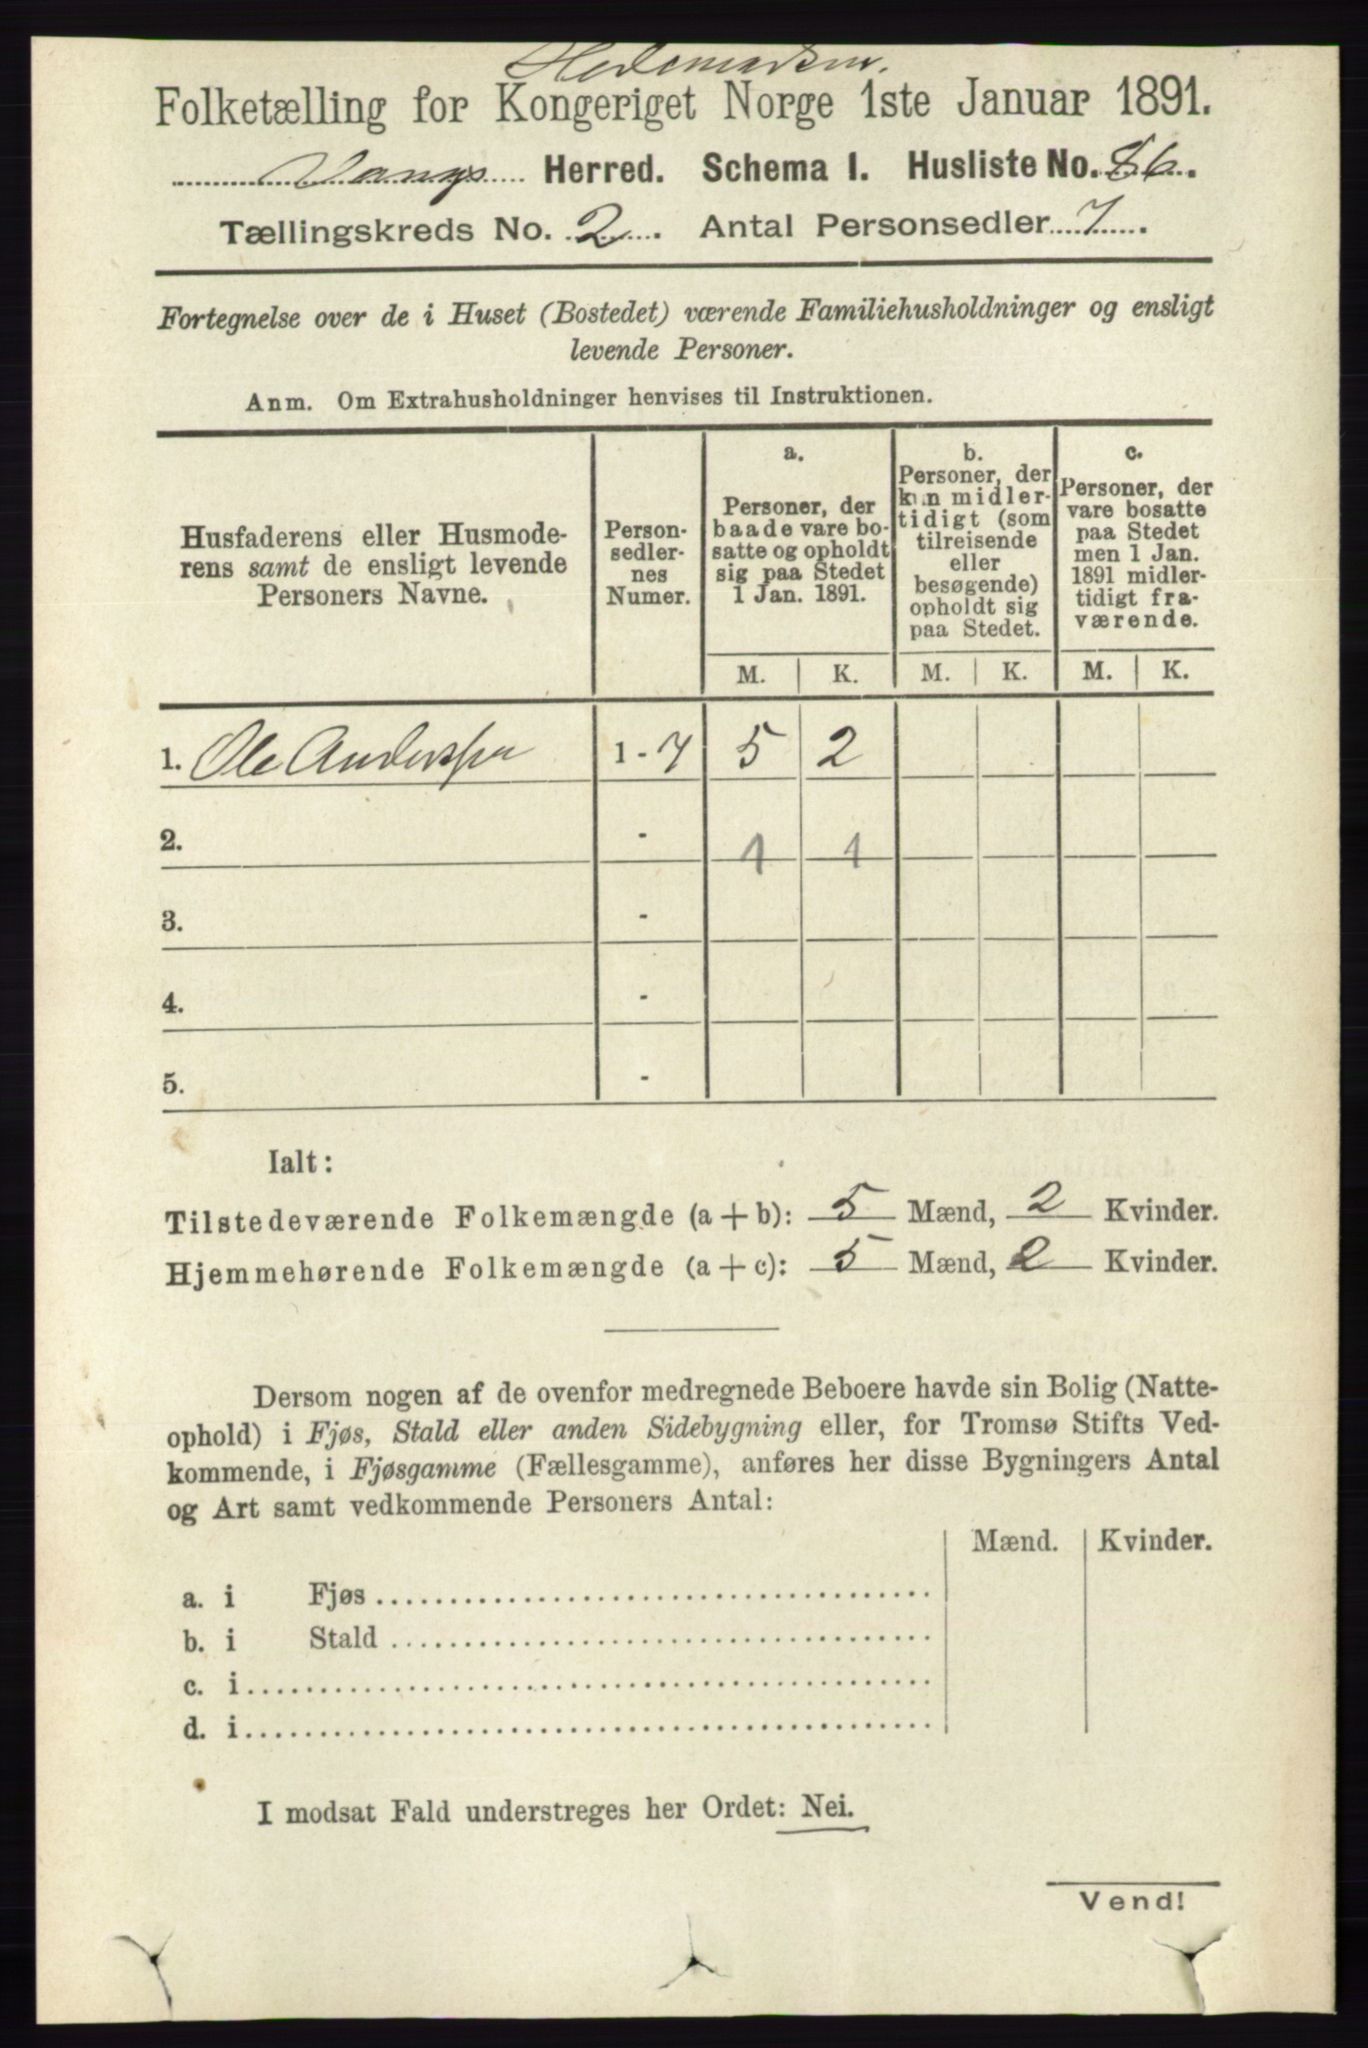 Hedemarken.
Folketælling for Kongeriget Norge 1ste Januar 1891.
Vangs Herred. Schema I. Husliste No. 86.
Tællingskreds No. 2. Antal Personsedler 7.
Fortegnelse over de i Huset (Bostedet) værende Familiehusholdninger og ensligt
levende Personer.
Anm. Om Extrahusholdninger henvises til Instruktionen.
Husfaderens eller Husmode-
rens samt de ensligt levende
Personers Navne.
Person-
sedler-
nes
Numer.
a.
Personer, der
baade vare bo-
satte og opholdt
sig paa Stedet
1 Jan. 1891.
b.
Personer, der
kun midler-
tidigt (som
tilreisende
eller
besøgende)
opholdt sig
paa Stedet.
c.
Personer, der
vare bosatte
paa Stedet
men 1 Jan.
1891 midler-
tidigt fra-
værende.
M. K. M. K. M. K.
1. Ole Anderssen 1-7 5 2
2. - 1 1
3. -
4. -
5. -
Ialt:
Tilstedeværende Folkemængde (a+b): 5 Mænd, 2 Kvinder.
Hjemmehørende Folkemængde (a+c): 5 Mænd, 2 Kvinder.
Dersom nogen af de ovenfor medregnede Beboere havde sin Bolig (Natte-
ophold) i Fjøs, Stald eller anden Sidebygning eller, for Tromsø Stifts Ved-
kommende, i Fjøsgamme (Fællesgamme), anføres her disse Bygningers Antal
og Art samt vedkommende Personers Antal:
Mænd. Kvinder.
a. i Fjøs
b. i Stald
c. i
d. i
I modsat Fald understreges her Ordet: Nei.
Vend!